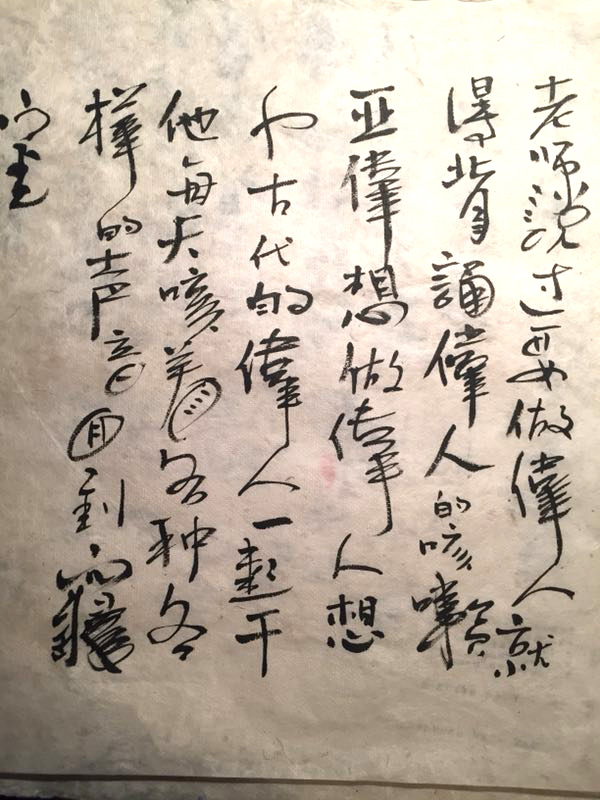 老师說过要做偉人就
得背誦偉人的咳嗽
亚偉想做偉人想
和古代的偉人一起干
他每天咳着各种各
樣的声音回到
室